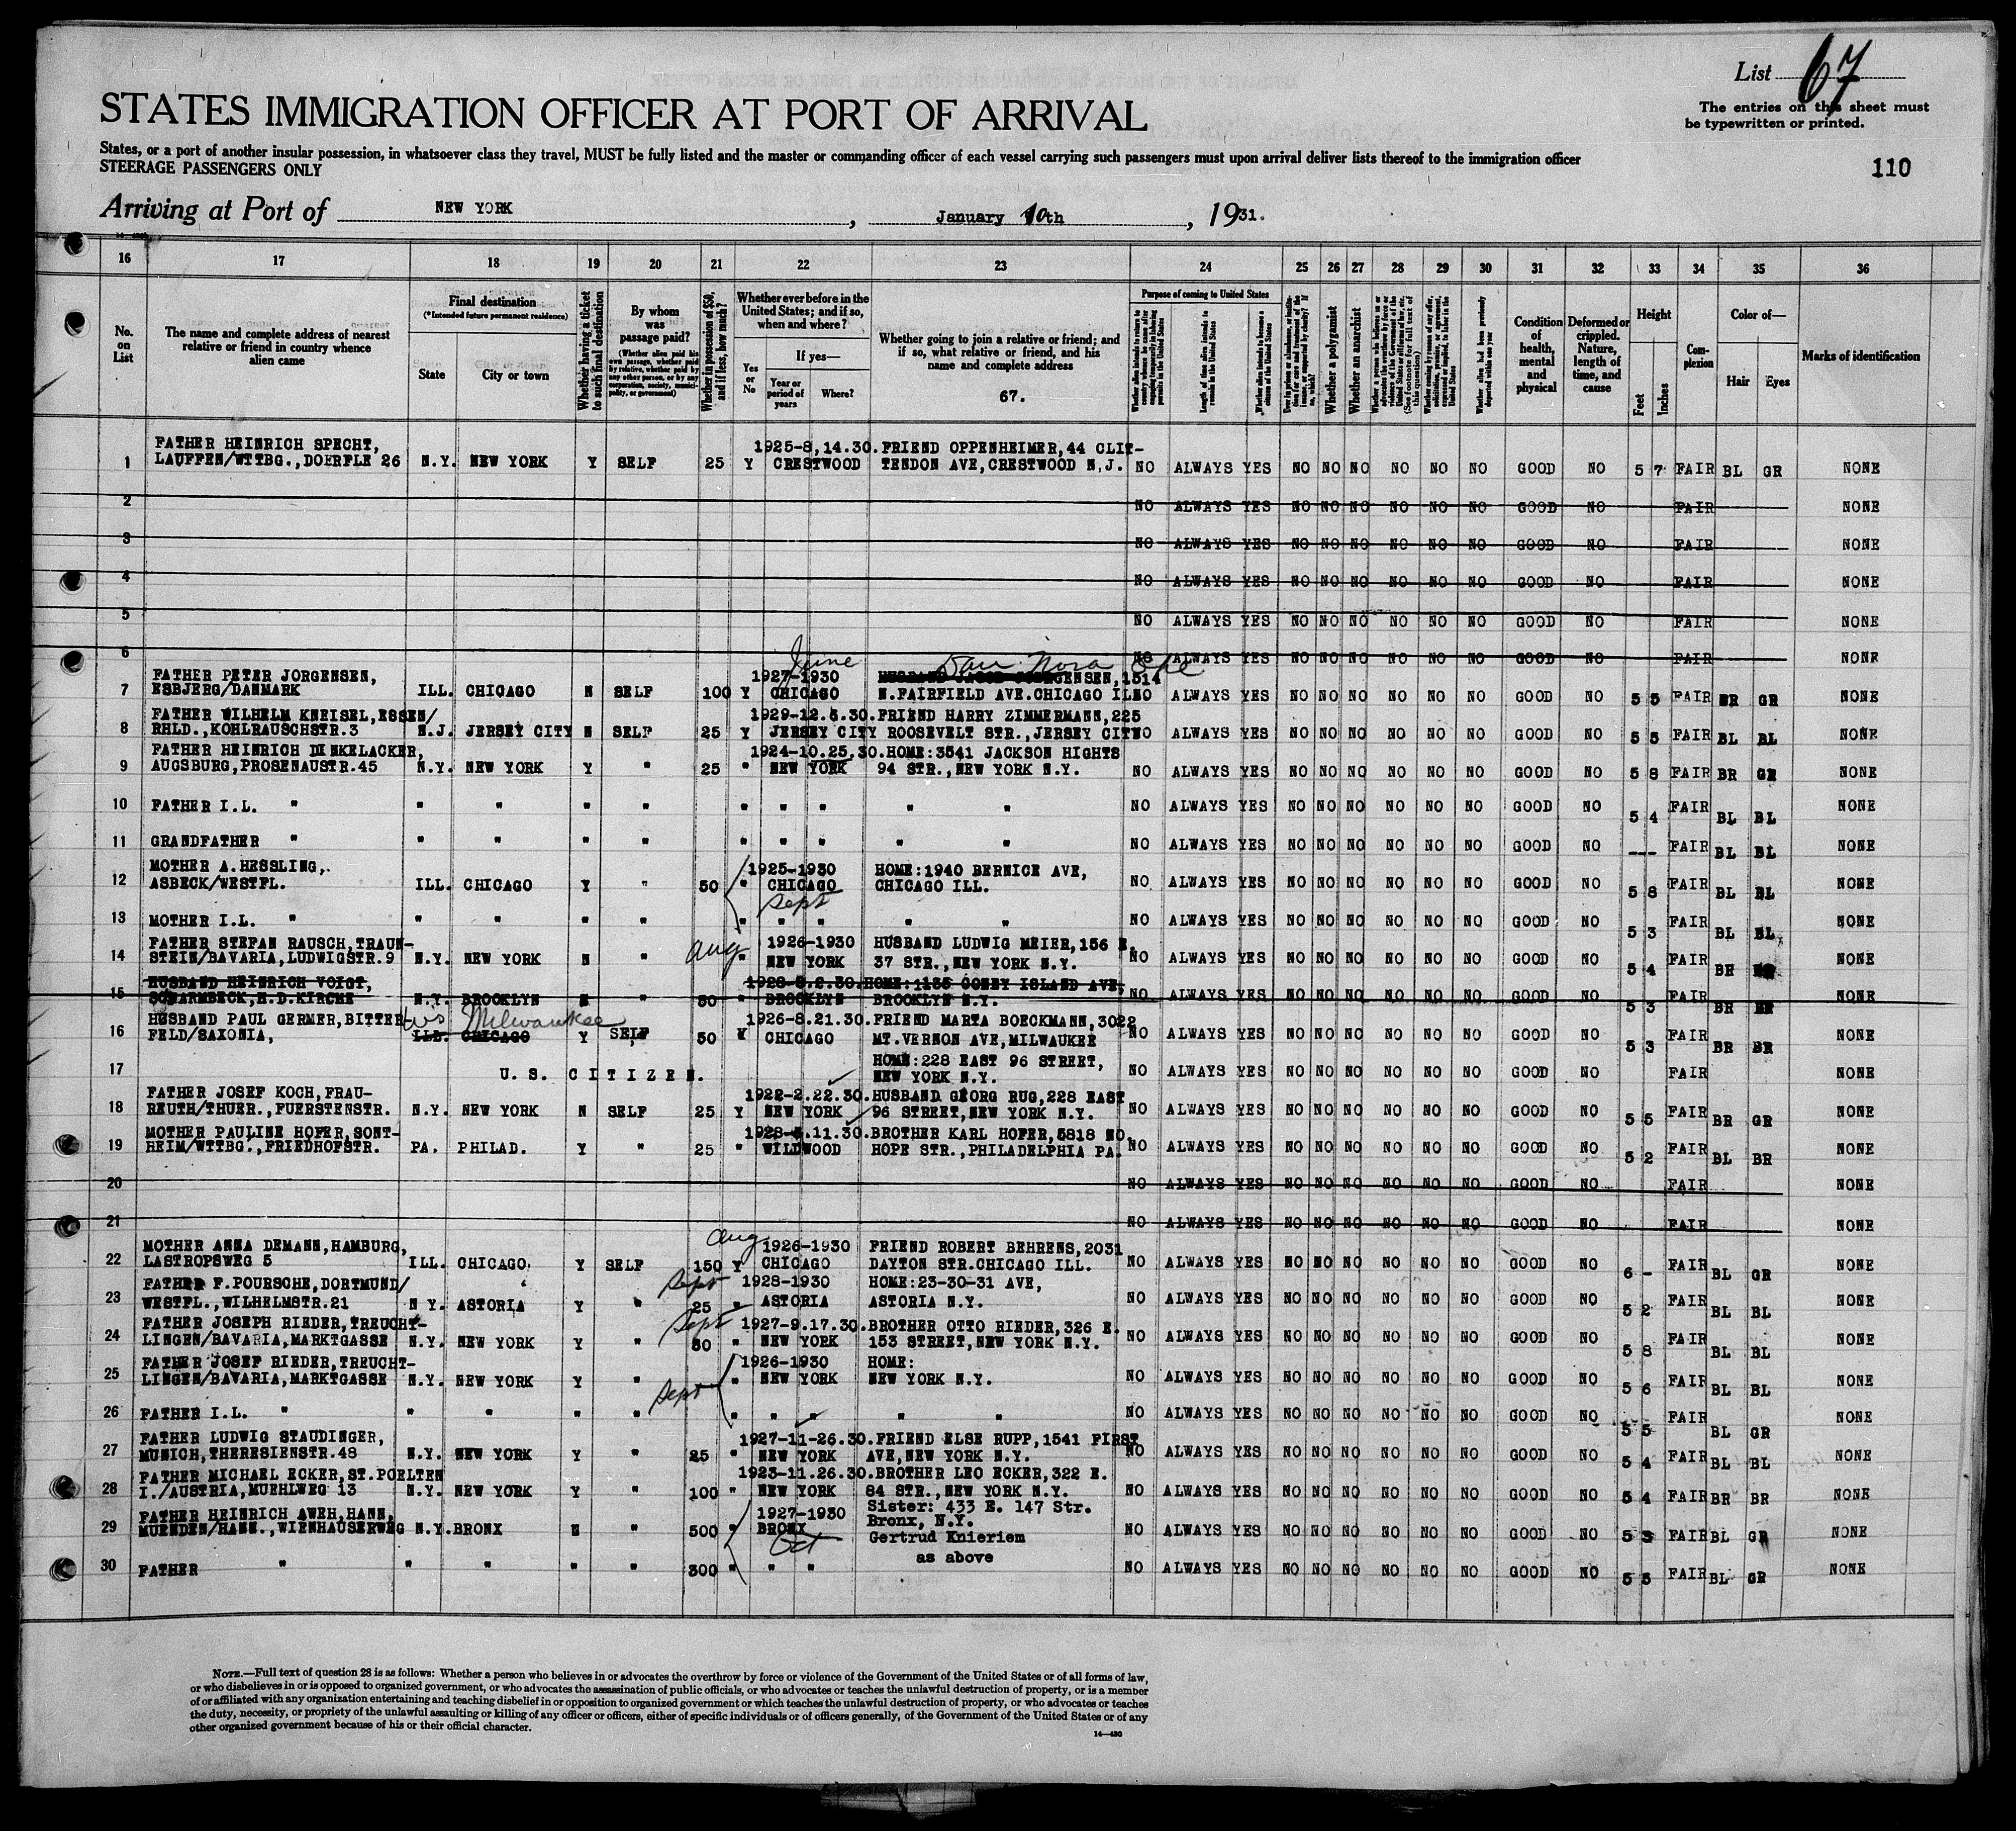 List 67
The entries on this sheet must
be typewritten or printed.
STATES IMMIGRATION OFFICER AT PORT OF ARRIVAL
States, or a port of another insular possession, in whatsoever class they travel, MUST be fully listed and the master or commanding officer of each vessel carrying such passengers must upon arrival deliver lists thereof to the immigration officer
STEERAGE PASSENGERS ONLY
110
Arriving at Port of NEW YORK, January 10th, 1931.
16 17 18 19 20 21 22 23 24 25 26 27 28 29 30 31 32 33 34 35 36
No. on List
The name and complete address of nearest relative or friend in country whence alien came
Final destination
(*Intended future permanent residence)
State
City or town
Whether having a ticket to such final destination
By whom was passage paid?
(Whether alien paid his own passage, whether paid by relative, whether paid by any other person, or by any corporation, society, municipality, or government)
Whether in possession of $50, and if less, how much?
Whether ever before in the United States; and if so, when and where?
Yes or No
If yes—
Year or period of years
Where?
Whether going to join a relative or friend; and if so, what relative or friend, and his name and complete address
67.
Purpose of coming to United States
Length of time alien intends to remain in the United States
Whether a polygamist
Whether an anarchist
Condition of health, mental and physical
Deformed or crippled. Nature, length of time, and cause
Height
Feet
Inches
Complexion
Color of—
Hair
Eyes
Marks of identification
1 FATHER HEINRICH SPECHT, 1925-8,14.30. FRIEND OPPENHEIMER,44 CLIF-
LAUFFEN/WTTBG.,DOERFLE 26 N.Y. NEW YORK Y SELF 25 Y CRESTWOOD TENDON AVE,CRESTWOOD N.J. NO ALWAYS YES NO NO NO NO NO NO GOOD NO 5 7 FAIR BL GR NONE
2 NO ALWAYS YES NO NO NO NO NO NO GOOD NO FAIR NONE
3 NO ALWAYS YES NO NO NO NO NO NO GOOD NO FAIR NONE
4 NO ALWAYS YES NO NO NO NO NO NO GOOD NO FAIR NONE
5 NO ALWAYS YES NO NO NO NO NO NO GOOD NO FAIR NONE
6 NO ALWAYS YES NO NO NO NO NO NO GOOD NO FAIR NONE
June
7 FATHER PETER JORGENSEN, 1927-1930 1514
ESBJERG/DANMARK ILL. CHICAGO N SELF 100 Y CHICAGO N.FAIRFIELD AVE.CHICAGO ILL NO ALWAYS YES NO NO NO NO NO NO GOOD NO 5 5 FAIR BR GR NONE
8 FATHER WILHELM KNEISEL,ESSEN/ 1929-12.5.30. FRIEND HARRY ZIMMERMANN,225
RHLD.,KOHLRAUSCHSTR.3 N.J. JERSEY CITY N SELF 25 Y JERSEY CITY ROOSEVELT STR.,JERSEY CITY NO ALWAYS YES NO NO NO NO NO NO GOOD NO 5 5 FAIR BL BL NONE
9 FATHER HEINRICH DINKELACKER, 1924-10.25.30. HOME:3541 JACKSON HIGHTS
AUGSBURG,PROSENAUSTR.45 N.Y. NEW YORK Y " 25 " NEW YORK 94 STR.,NEW YORK N.Y. NO ALWAYS YES NO NO NO NO NO NO GOOD NO 5 8 FAIR BR GR NONE
10 FATHER I.L. " " " " " " " " " " NO ALWAYS YES NO NO NO NO NO NO GOOD NO 5 4 FAIR BL BL NONE
11 GRANDFATHER " " " " " " " " " " NO ALWAYS YES NO NO NO NO NO NO GOOD NO -- FAIR BL BL NONE
12 MOTHER A.HESSLING, 1925-1930 HOME:1940 BERNICE AVE,
ASBECK/WESTFL. ILL. CHICAGO Y " 50 " CHICAGO CHICAGO ILL. NO ALWAYS YES NO NO NO NO NO NO GOOD NO 5 8 FAIR BL BL NONE
Sept
13 MOTHER I.L. " " " " " " " " " " NO ALWAYS YES NO NO NO NO NO NO GOOD NO 5 3 FAIR BL BL NONE
14 FATHER STEFAN RAUSCH,TRAUN- Aug 1926-1930 HUSBAND LUDWIG MEIER,156 E.
STEIN/BAVARIA,LUDWIGSTR.9 N.Y. NEW YORK N " " NEW YORK 37 STR.,NEW YORK N.Y. NO ALWAYS YES NO NO NO NO NO NO GOOD NO 5 4 FAIR NONE
15 HUSBAND HEINRICH VOIGT, HOME:1135 CONEY ISLAND AVE,
SCHARMBECK,H.D.KIRCHE N.Y. BROOKLYN N " 50 " BROOKLYN BROOKLYN N.Y. NO ALWAYS YES NO NO NO NO NO NO GOOD NO 5 3 FAIR BR BR NONE
16 HUSBAND PAUL GERMER,BITTER- Wis Milwaukee 1926-8.21.30. FRIEND MARTA BOECKMANN,3022
FELD/SAXONIA, ILL. CHICAGO Y SELF 50 Y CHICAGO MT.VERNON AVE,MILWAUKEE NO ALWAYS YES NO NO NO NO NO NO GOOD NO 5 3 FAIR BR BR NONE
17 U.S. CITIZEN. HOME:228 EAST 96 STREET,
NEW YORK N.Y. NO ALWAYS YES NO NO NO NO NO NO GOOD NO FAIR NONE
18 FATHER JOSEF KOCH,FRAU- 1922-2.22.30. HUSBAND GEORG RUG,228 EAST
REUTH/THUER.,FUERSTENSTR. N.Y. NEW YORK N SELF 25 Y NEW YORK 96 STREET,NEW YORK N.Y. NO ALWAYS YES NO NO NO NO NO NO GOOD NO 5 5 FAIR BR GR NONE
19 MOTHER PAULINE HOFER,SONT- BROTHER KARL HOFER,5818 NO.
HEIM/WTTBG.,FRIEDHOFSTR. PA. PHILAD. Y " 25 " WILDWOOD HOPE STR.,PHILADELPHIA PA. NO ALWAYS YES NO NO NO NO NO NO GOOD NO 5 2 FAIR BL BR NONE
20 NO ALWAYS YES NO NO NO NO NO NO GOOD NO FAIR NONE
21 NO ALWAYS YES NO NO NO NO NO NO GOOD NO FAIR NONE
22 MOTHER ANNA DEMANN,HAMBURG, Aug 1926-1930 FRIEND ROBERT BEHRENS,2031
LASTROPSWEG 5 ILL. CHICAGO. Y SELF 150 Y CHICAGO DAYTON STR.CHICAGO ILL. NO ALWAYS YES NO NO NO NO NO NO GOOD NO 6 - FAIR BL GR NONE
23 FATHER F.POUESCHE,DORTMUND/ Sept 1928-1930 HOME:23-30-31 AVE,
WESTFL.,WILHELMSTR.21 N Y. ASTORIA Y " 25 " ASTORIA ASTORIA N.Y. NO ALWAYS YES NO NO NO NO NO NO GOOD NO 5 2 FAIR BL BL NONE
24 FATHER JOSEPH RIEDER,TREUCHT- Sept 1927-9.17.30. BROTHER OTTO RIEDER,326 E.
LINGEN/BAVARIA,MARKTGASSE N.Y. NEW YORK Y " 50 " NEW YORK 153 STREET,NEW YORK N.Y. NO ALWAYS YES NO NO NO NO NO NO GOOD NO 5 8 FAIR BL BL NONE
25 FATHER JOSEF RIEDER,TREUCHT- 1926-1930 HOME:
LINGEN/BAVARIA,MARKTGASSE N.Y. NEW YORK Y " Sept " NEW YORK NEW YORK N.Y. NO ALWAYS YES NO NO NO NO NO NO GOOD NO 5 6 FAIR BL BL NONE
26 FATHER I.L. " " " " " " " " " " NO ALWAYS YES NO NO NO NO NO NO GOOD NO 5 5 FAIR BL GR NONE
27 FATHER LUDWIG STAUDINGER, 1927-11-26.30. FRIEND ELSE RUPP,1541 FIRST
MUNICH,THERESIENSTR.48 N.Y. NEW YORK Y " 25 " NEW YORK AVE,NEW YORK N.Y. NO ALWAYS YES NO NO NO NO NO NO GOOD NO 5 4 FAIR BL BL NONE
28 FATHER MICHAEL ECKER,ST.POELTEN 1923-11.26.30. BROTHER LEO ECKER,322 E.
I./AUSTRIA,MUEHLWEG 13 N.Y. NEW YORK Y " 100 " NEW YORK 84 STR.,NEW YORK N.Y. NO ALWAYS YES NO NO NO NO NO NO GOOD NO 5 4 FAIR BR BR NONE
29 FATHER HEINRICH AWEH,HANN, 1927-1930 Sister: 433 E. 147 Str.
Bronx, N.Y.
MUENDEN/HANN.,WIENHAUSERWEG N.Y. BRONX N " 500 " BRONX Gertrud Knieriem NO ALWAYS YES NO NO NO NO NO NO GOOD NO 5 3 FAIR BL GR NONE
Oct
30 FATHER " " " " " 300 " " " as above NO ALWAYS YES NO NO NO NO NO NO GOOD NO 5 5 FAIR BL GR NONE
NOTE.—Full text of question 28 is as follows: Whether a person who believes in or advocates the overthrow by force or violence of the Government of the United States or of all forms of law,
or who disbelieves in or is opposed to organized government, or who advocates the assassination of public officials, or who advocates or teaches the unlawful destruction of property, or is a member
of or affiliated with any organization entertaining and teaching disbelief in or opposition to organized government or which teaches the unlawful destruction of property, or who advocates or teaches
the duty, necessity, or propriety of the unlawful assaulting or killing of any officer or officers, either of specific individuals or of officers generally, of the Government of the United States or of any
other organized government because of his or their official character.
14—430